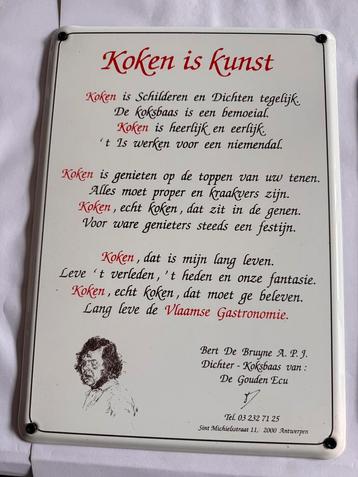 Koken is kunst
Koken is Schilderen en Dichten tegelijk.
De koksbaas is een bemoeial.
Koken is heerlijk en eerlijk.
't Is werken voor een niemendal.
Koken is genieten op de toppen van uw tenen.
Alles moet proper en kraakvers zijn.
Koken, echt koken, dat zit in de genen.
Voor ware genieters steeds een festijn.
Koken, dat is mijn lang leven.
Leve 't verleden, 't heden en onze fantasie.
Koken, echt koken, dat moet ge beleven.
Lang leve de Vlaamse Gastronomie.
Bert De Bruyne A.P.J.
Dichter - Koksbaas van :
De Gouden Ecu
Tel. 03 232 71 25
Sint Michielsstraat 11, 2000 Antwerpen